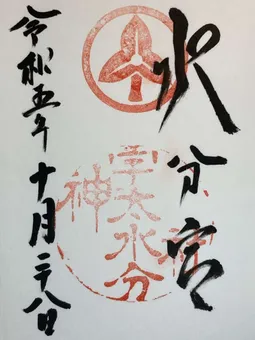 水分宮
宇太水分
神
令和五年十月二八日